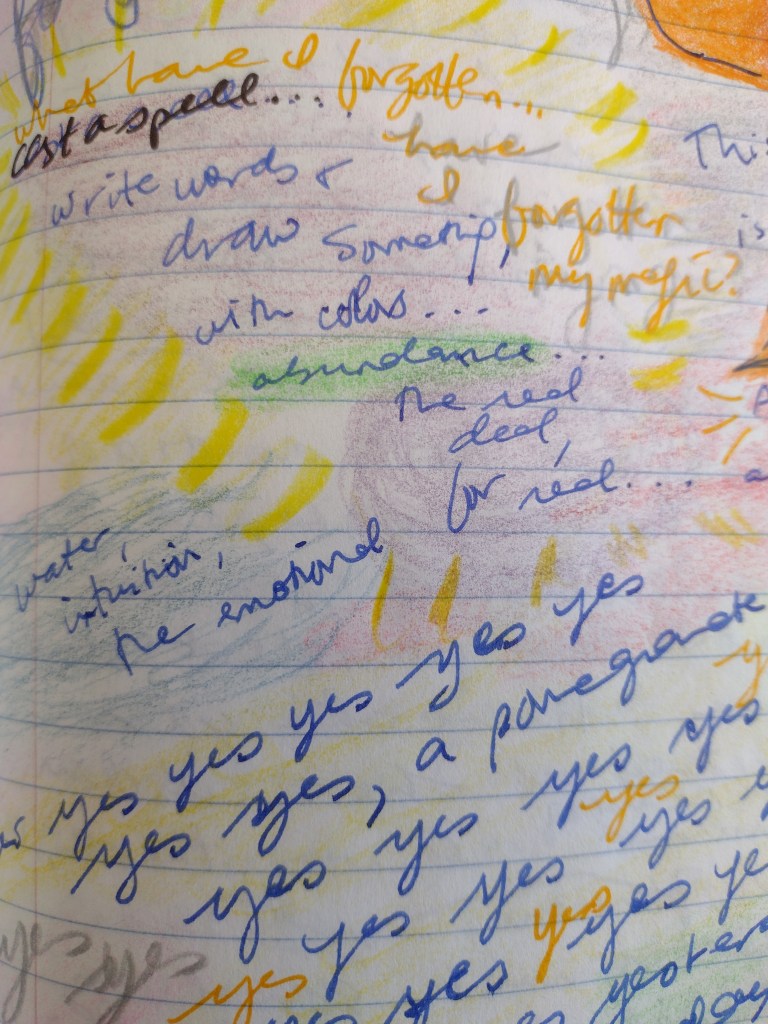 what have I forgotten...
cast a spell...
have
I
forgotten
my magic?
write words &
draw something,
with colors...
abundance...
the real
deal,
for real....
This
is
water,
intuition,
the emotional
yes yes yes yes yes
yes yes, a pomegranate
yes yes yes yes
yes
yes yes yes
yes yes yes
yes yes